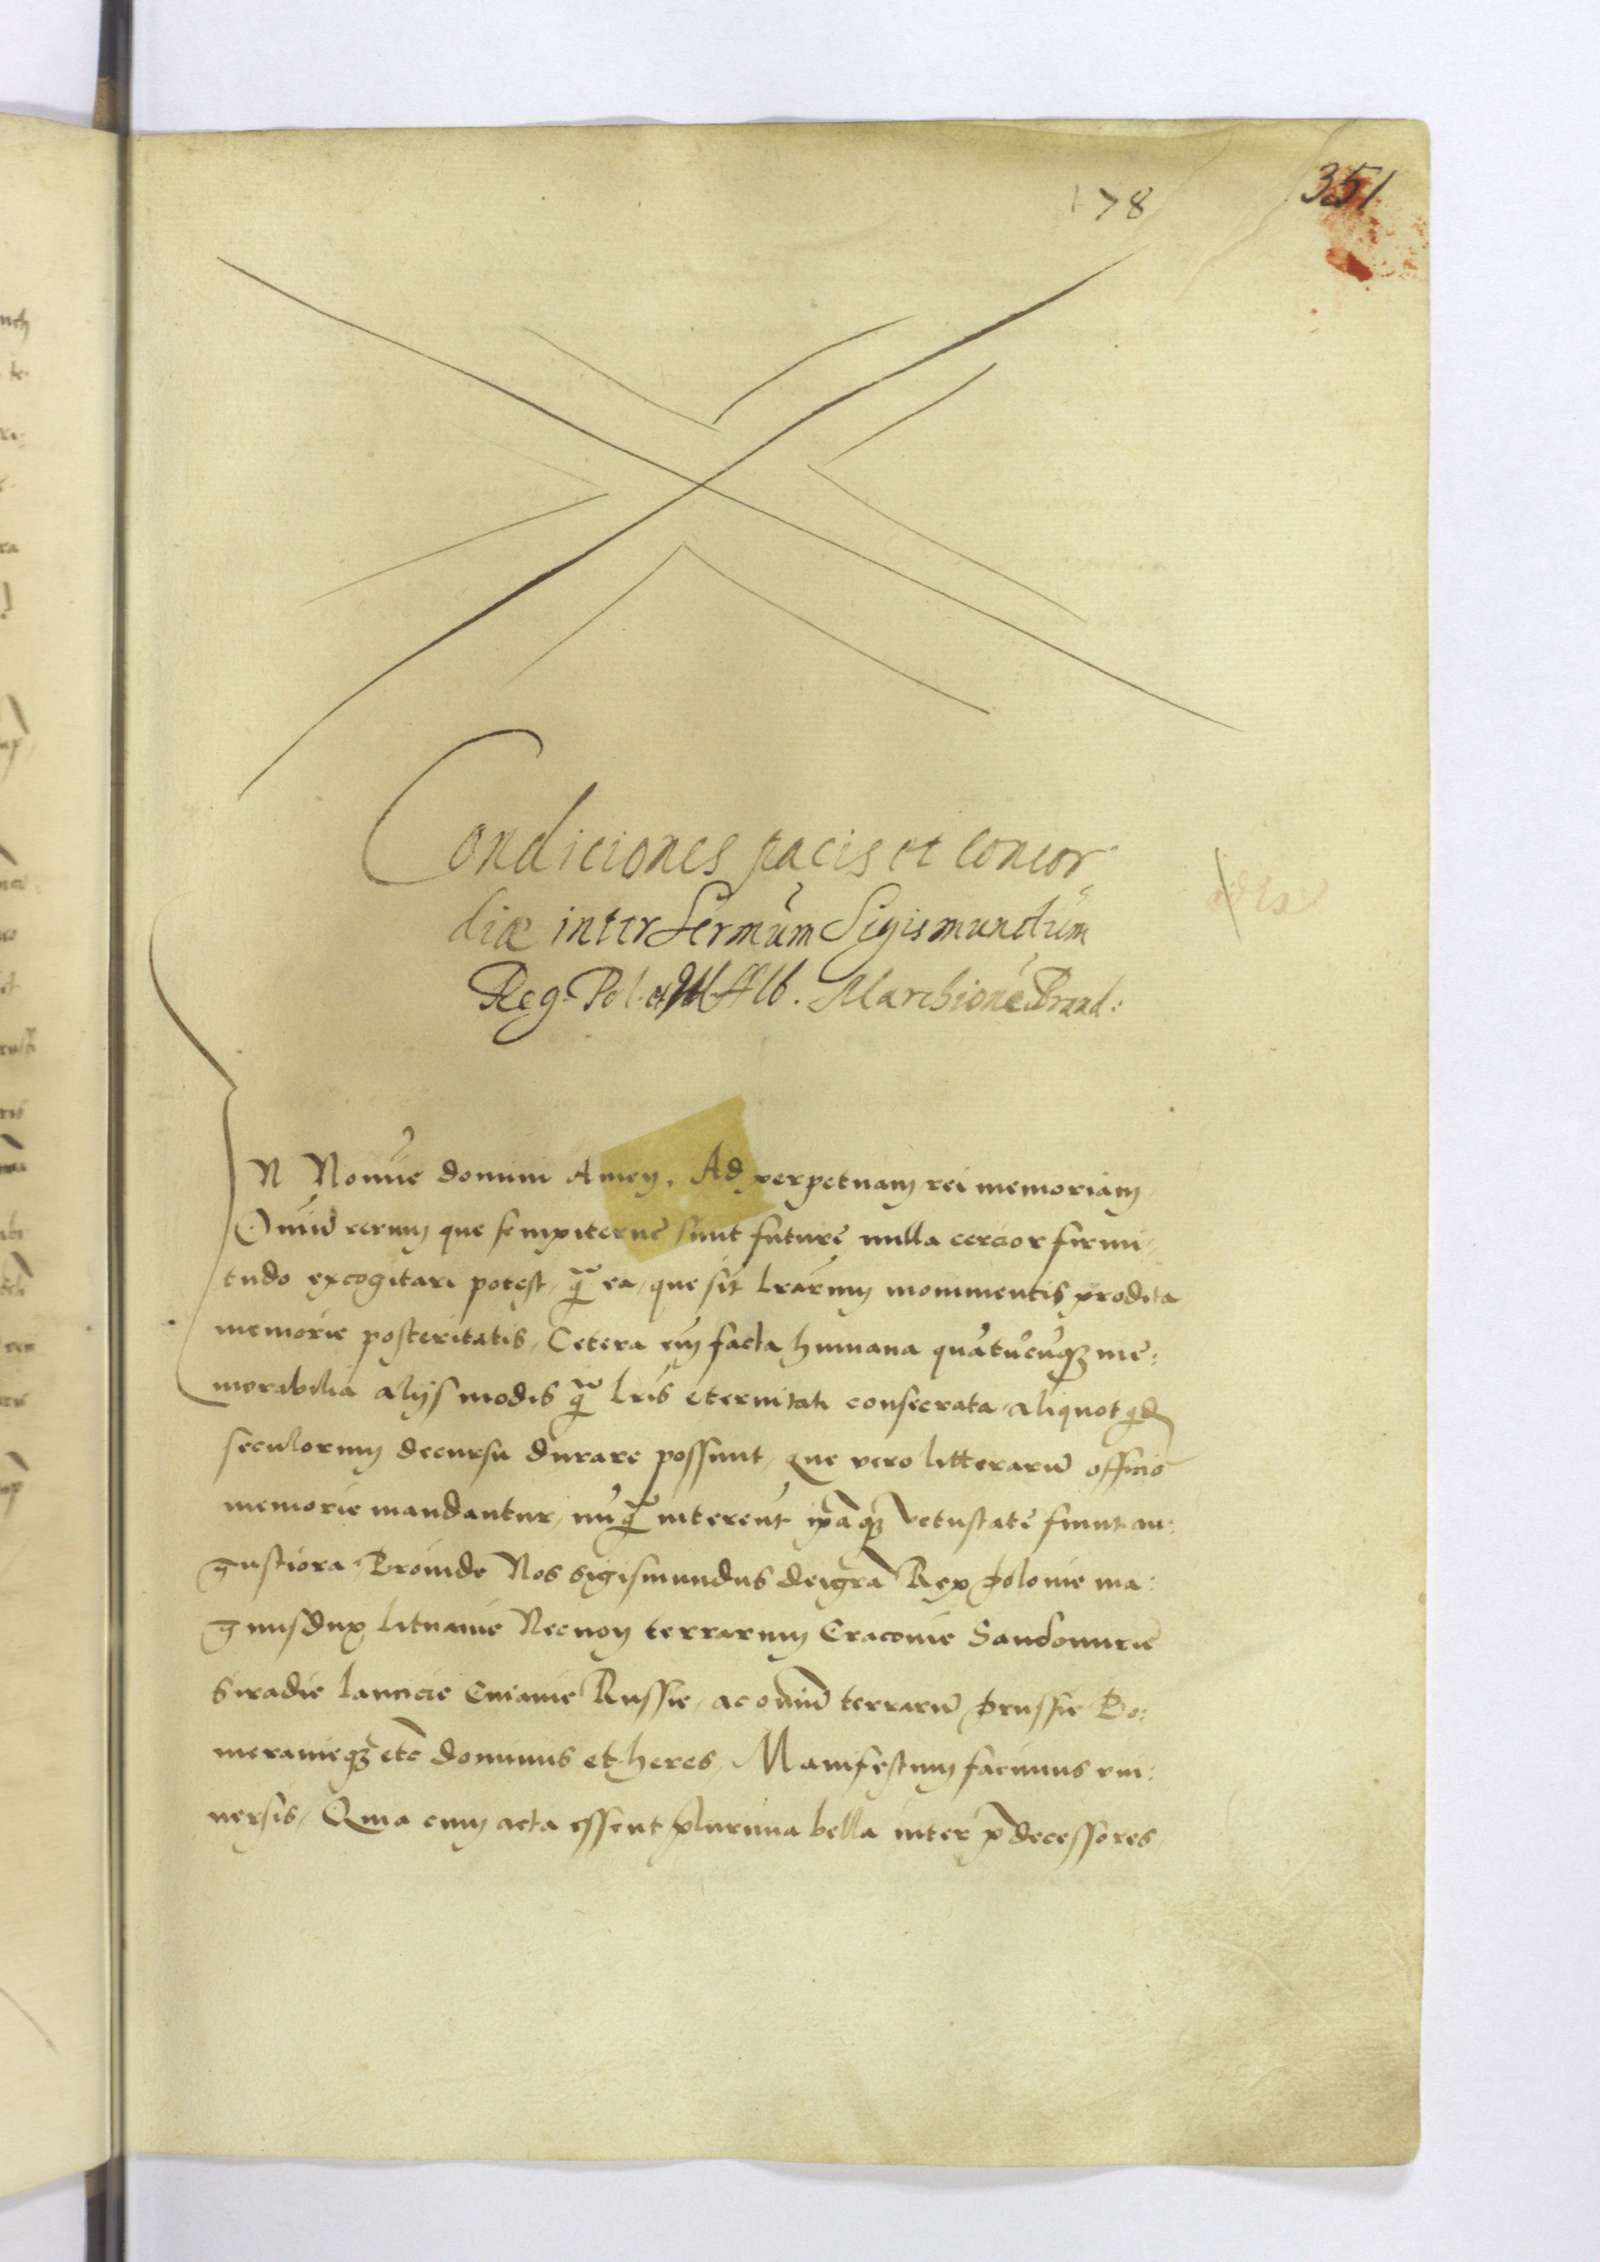 178
351
Condiciones pacis et concor
diæ inter Sermũm Sigismundũm
Reg. Pol. et Alb. Marchionẽ Brand:
IN Nomĩe domini Amen. Ad perpetuam rei memoriam
Omniũ rerum que sempiterne sunt future nulla cercior firmi:
tudo excogitari potest, q̃ ea, que sit lrãrum monimentis prodita
memorie posteritatis, Cetera em̃ facta humana quãtũcũqȝ me:
morabilia alijs modis q̃ lrĩs eternitati consecrata, aliquot qd̃
seculorum decursu durare possunt, que vero litterarũ officio
memorie mandantur, nũq̃ intereũt ip̃aqȝ vetustate fiunt au:
gustiora. Proinde Nos Sigismundus dei gr̃a Rex Polonie ma:
gnus dux Lituanie Necnon terrarum Cracovie Sandomirie
Siradie Lancicie Cuiavie Russie, ac omniũ terrarũ Prussie Po:
meranieqȝ etc̃ dominus et heres, Manifestum facimus vni:
uersis, Quia cum acta essent plurima bella inter p̃decessores